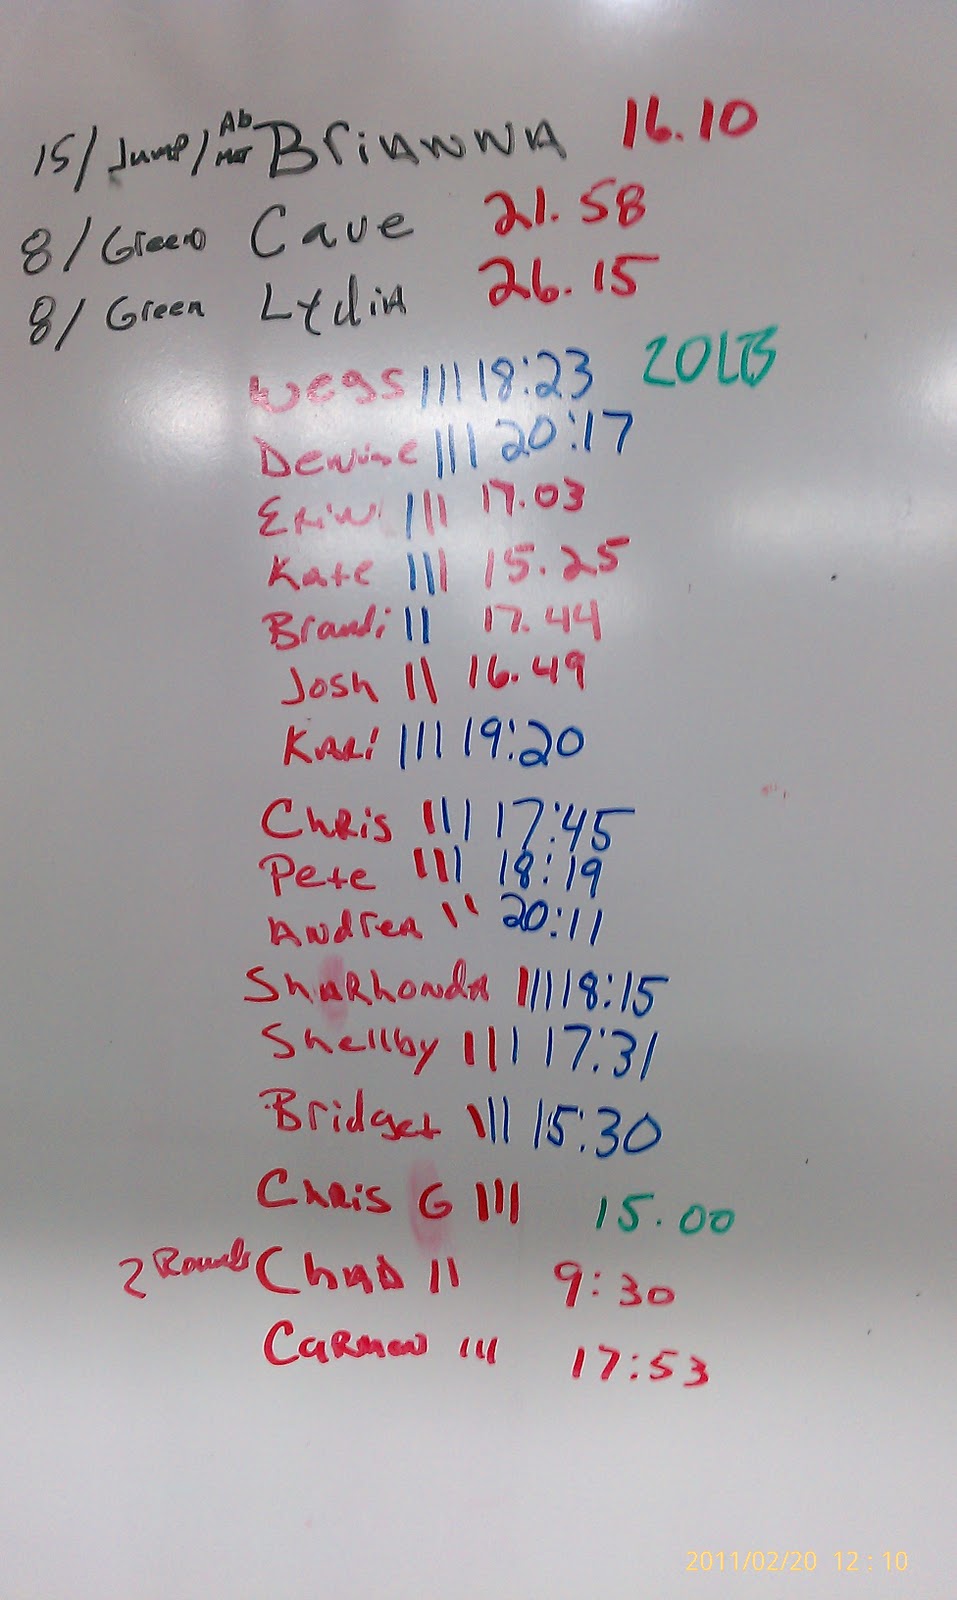 15/Jump/Ab Mat BriANNA 16.10
8/Green Cave 21.58
8/Green LydiA 26.15
Wegs ||| 18:23 20LB
Denise ||| 20:17
EriN ||| 17.03
Kate ||| 15.25
Brandi || 17.44
Josh || 16.49
KARi ||| 19:20
ChRis ||| 17:45
Pete ||| 18:19
ANdreA || 20:11
ShARhondA ||| 18:15
Shellby ||| 17:31
Bridget ||| 15:30
ChRis G ||| 15.00
2 Rounds ChAD || 9:30
CaRmen ||| 17:53
2011/02/20 12:10